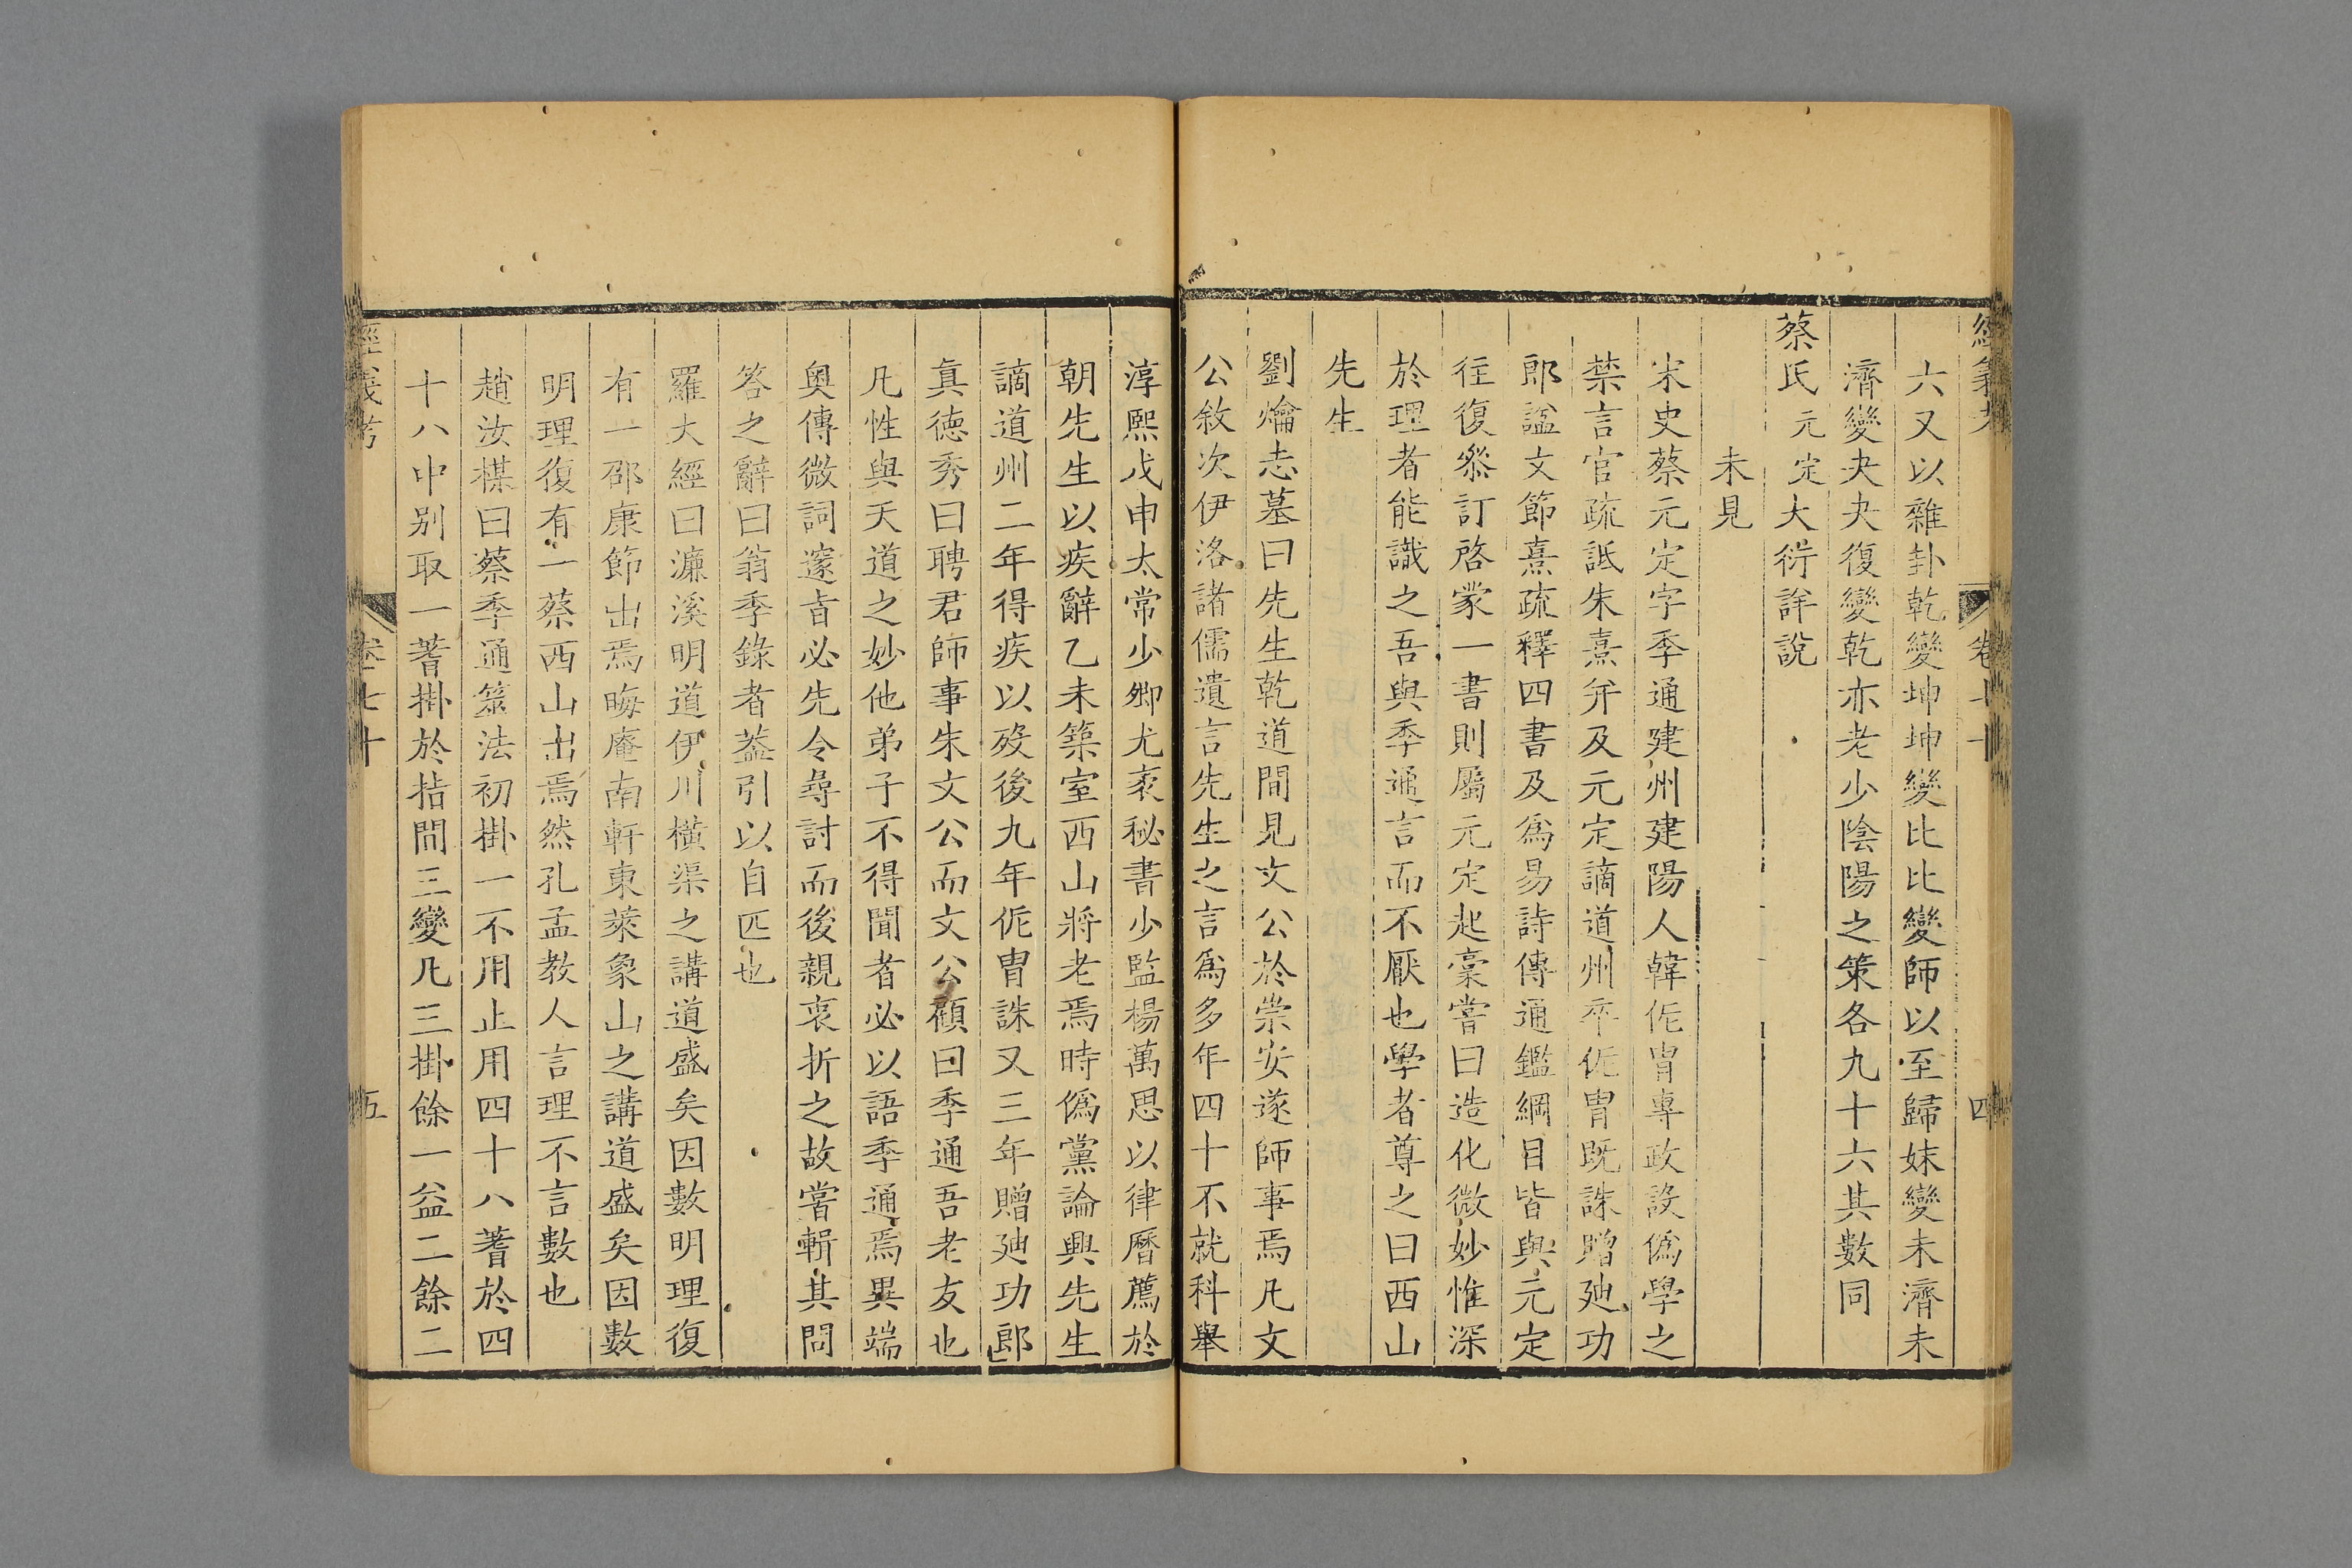 六又以雜卦乾變坤坤變比比變師以至歸妹變未濟未
濟變夬夬復變乾亦老少陰陽之策各九十六其數同
蔡氏元定大衍詳說
未見
宋史蔡元定字季通建州建陽人韓侂胄專政設僞學之
禁言官疏詆朱熹幷及元定謫道州卒侂胄既誅贈廸功
郎諡文節熹疏釋四書及爲易詩傳通鑑綱目皆與元定
往復叅訂啓蒙一書則屬元定起稾嘗曰造化微妙惟深
於理者能識之吾與季通言而不厭也學者尊之曰西山
先生
劉爚志墓曰先生乾道間見文公於崇安遂師事焉凡文
公敘次伊洛諸儒遺言先生之言爲多年四十不就科舉
淳熙戊申太常少卿尤袤秘書少監楊萬思以律曆薦於
朝先生以疾辭乙未築室西山將老焉時僞黨論興先生
謫道州二年得疾以歿後九年侂胄誅又三年贈廸功郎
眞德秀曰聘君師事朱文公而文公顧曰季通吾老友也
凡性與天道之妙他弟子不得聞者必以語季通焉異端
奧傳微詞邃旨必先令尋討而後親衷折之故嘗輯其問
答之辭曰翁季錄者葢引以自匹也
羅大經曰濂溪明道伊川橫渠之講道盛矣因數明理復
有一邵康節出焉晦庵南軒東萊象山之講道盛矣因數
明理復有一蔡西山出焉然孔孟教人言理不言數也
趙汝楳曰蔡季通筮法初掛一不用止用四十八蓍於四
十八中別取一蓍掛於拈間三變凡三掛餘一益二餘二
經義考
卷七十
五